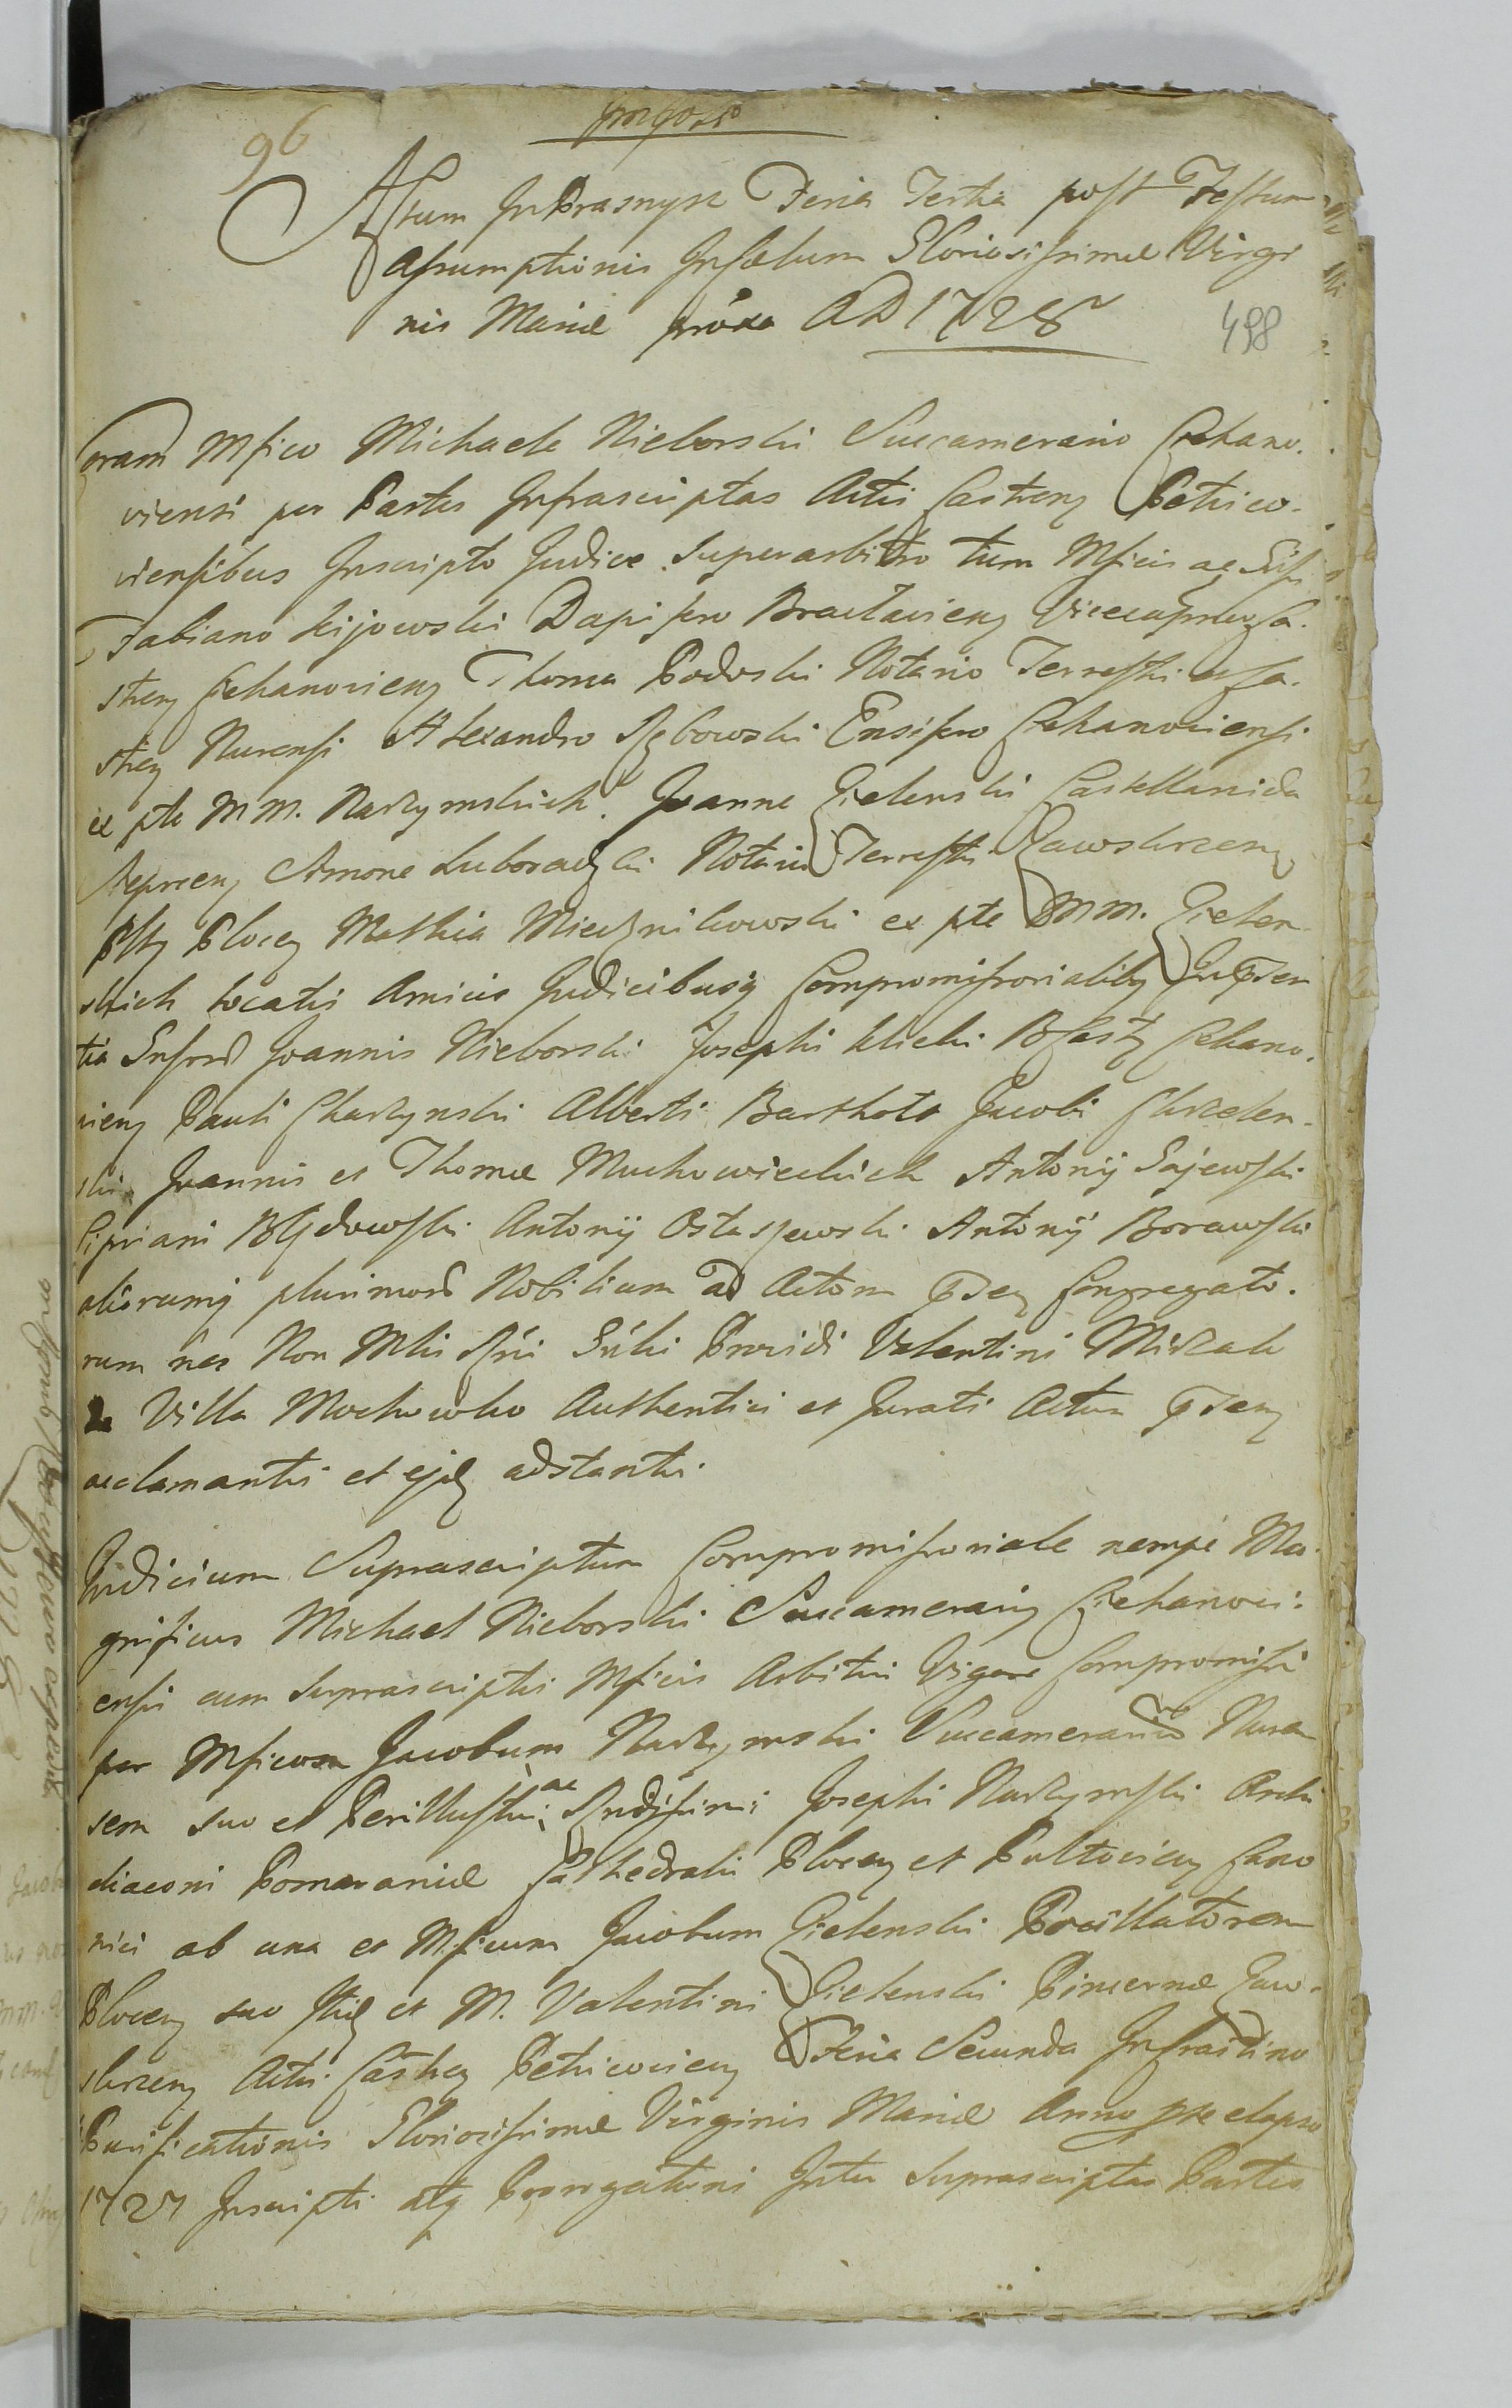 96
Actum In Prasnysz Feria Tertia post Festum
Assumptionis In Cælum Gloriosissimæ Virgi
nis Mariæ próxa AD 1728
498
Coram Mfico Michaele Nieborski Succamerario Ciechano.
viensi per Partes Infrascriptas Actis Castreñ Petrico.
viensibus Inscripto Judice Superarbitro tum Mficis ac
Fabiano Kijowski Dapifero Braclavieñ Vicecapneo Ca.
streñ Ciechanovieñ Thoma Podoski Notario Terrestri Ca.
streñ Nurensi Alexandro Ensifero Ciechanoviensi
ex pte M M. Narzymskich. Joanne Zielenski Castellanida
Sieprceñ Simone Luboradzki Notario Terrestri Zawskrzeñ
Plty Ploceñ Mathia Miecznikowski ex pte M M. Zielen
skich locatis Amicis Judicibusq Compromissorialibq In Præsen
tia Joannis Nieborski Josephi Klicki B Castr Ciechano.
vieñ Pauli Charzynski Alberti Bartholo Jacobi Chrzelen.
ski Joannis et Thomæ Muchowieckich Antonij Gajewski
Cipriani Antonij Ostaszewski Antonij Borawski
aliorumq plurimorũ Nobilium ad Actum Congregato.
rum nec Non Mli Rñi Gñli Providi Valentini
de Villa Mochowko Authentici et Jurati Actum
acclamantis et ejd adstantis.
Judicium Suprascriptum Compromissoriale nempe Ma.
gnificus Michael Nieborski Succamerariq Ciechanovi.
ensis cum Suprascriptis Mficis Arbitris Vigore Compromissi
per Mficum Jacobum Narzymski Succamerariũ Nuren
sem suo et Perillustris ac Rndissimi Josephi Narzymski Archi
diaconi Pomeraniæ Cathedralis Ploceñ et Pultovieñ Cano
nici ab una et Mficum Jacobum Zielenski Pocillatorem
Ploceñ suo et M. Valentini Zielenski Pincernæ Zaw.
skrzeñ Actis Castreñ Petricovieñ Feria Secunda In Crastino
Purificationis Gloriosissimæ Virginis Mariæ Anno elapso
1727 Inscripti atq Prorogationis Inter Suprascriptas Partes